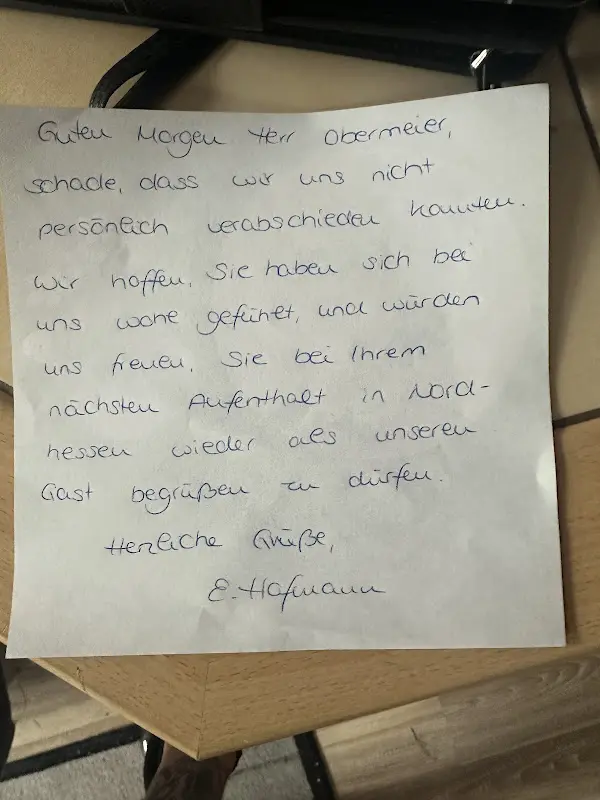 Guten Morgen Herr Obermeier,
schade, dass wir uns nicht
persönlich verabschieden konnten.
Wir hoffen, Sie haben sich bei
uns wohl gefühlt, und würden
uns freuen, Sie bei Ihrem
nächsten Aufenthalt in Nord-
hessen wieder als unseren
Gast begrüßen zu dürfen.
Herzliche Grüße,
E. Hofmann